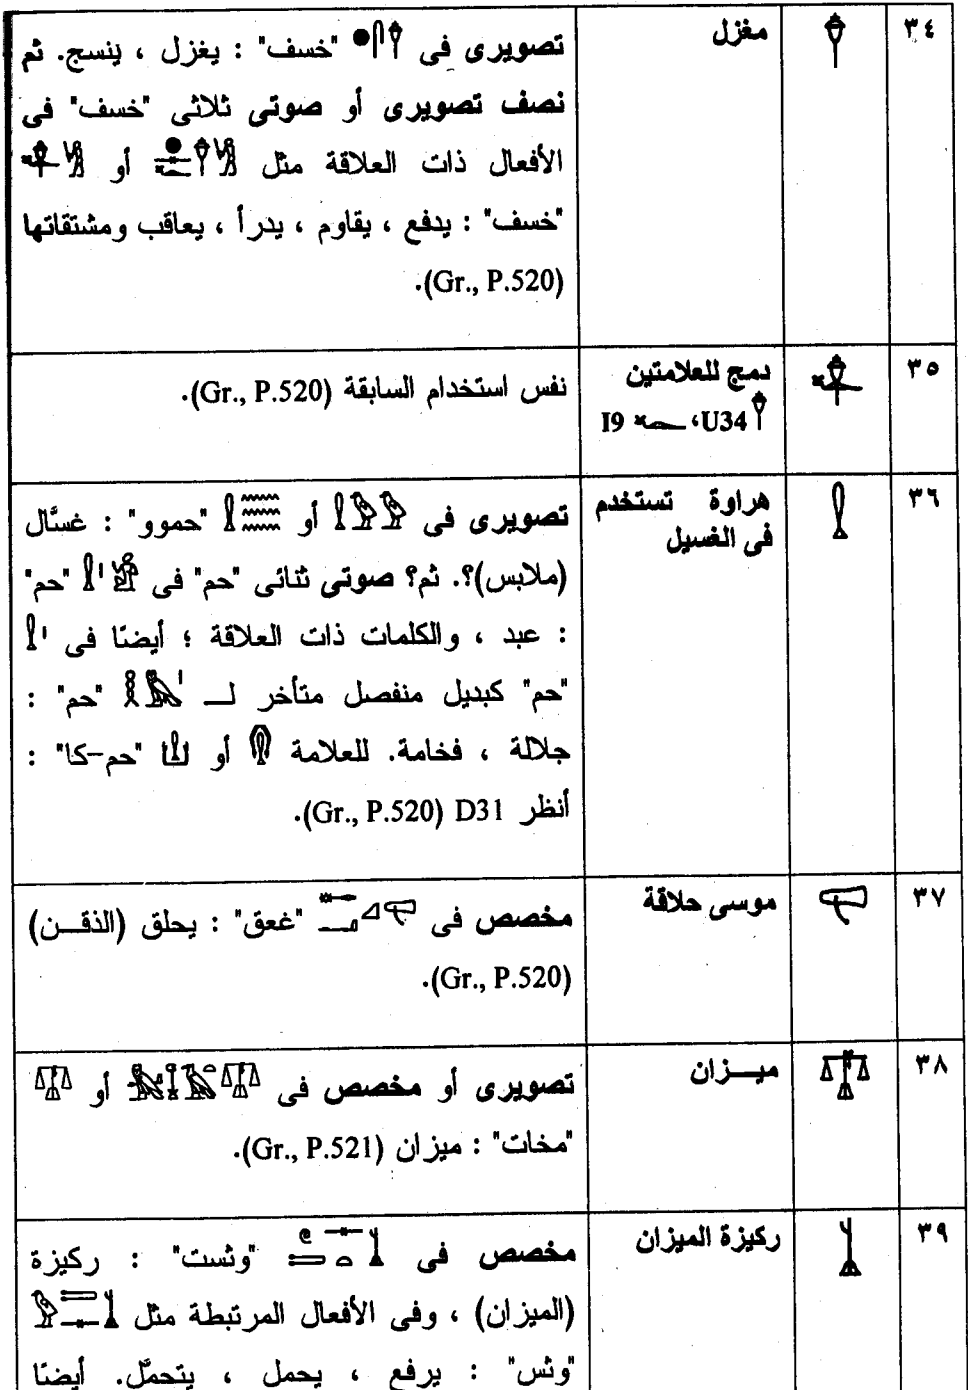 ٣٤ مغزل تصويرى فى "خسف" : يغزل ، ينسج. ثم
نصف تصويرى أو صوتى ثلاثى "خسف" فى
الأفعال ذات العلاقة مثل أو
"خسف" : يدفع ، يقاوم ، يدرأ ، يعاقب ومشتقاتها
(Gr., P.520).
٣٥ دمج للعلامتين نفس استخدام السابقة (Gr., P.520).
U34، I9
٣٦ هراوة تستخدم تصويرى فى أو "حموو" : غسَّال
فى الغسيل (ملابس)؟. ثم؟ صوتى ثنائى "حم" فى "حم"
: عبد ، والكلمات ذات العلاقة ؛ أيضًا فى
"حم" كبديل منفصل متأخر لـــ "حم" :
جلالة ، فخامة. للعلامة أو "حم-كا" :
أنظر D31 (Gr., P.520).
٣٧ موسى حلاقة مخصص فى "غعق" : يحلق (الذقــن)
(Gr., P.520).
٣٨ ميـــزان تصويرى أو مخصص فى أو
"مخات" : ميزان (Gr., P.521).
٣٩ ركيزة الميزان مخصص فى "وثست" : ركيزة
(الميزان) ، وفى الأفعال المرتبطة مثل
"وثس" : يرفع ، يحمل ، يتحمَّل. أيضًا